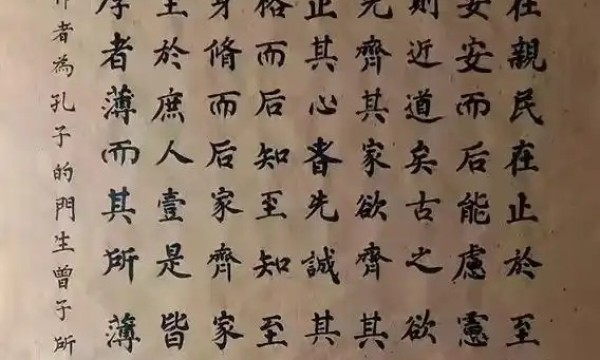 在親民在止於至
安安而后能慮慮
則近道矣古之欲
先齊其家欲齊其
正其心者先誠其
格而后知至知至
身脩而后家齊家
至於庶人壹是皆
厚者薄而其所薄
作者為孔子的門生曾子所